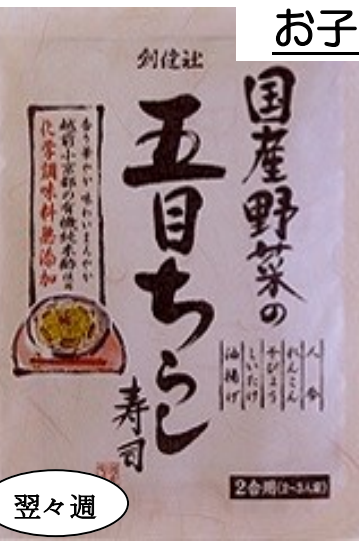 お子
創健社
国産野菜の
五目ちらし
寿司
香り華やか味わいまろやか
越前小京都の有機純米酢使用
化学調味料無添加
人参
れんこん
干ぴょう
しいたけ
油揚げ
2合用(2〜3人前)
翌々週